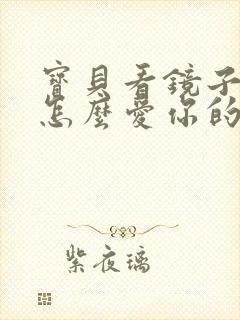 寶貝看鏡子
怎麼愛你的
紫夜璃